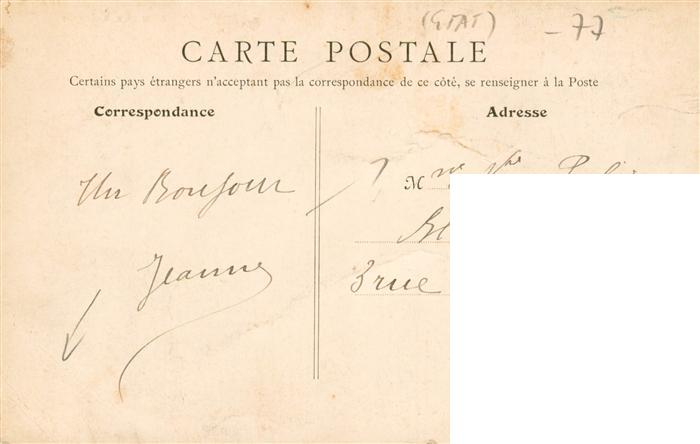 (ETAT) - 77
CARTE POSTALE
Certains pays étrangers n'acceptant pas la correspondance de ce côté, se renseigner à la Poste
Correspondance
Adresse
Un Bonjour
Jeanne
M
3 rue